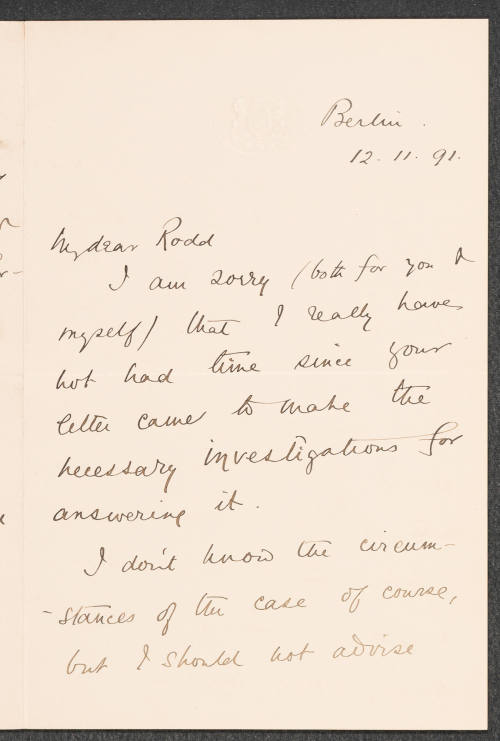 Berlin.
12. 11. 91.
My dear Rodd
I am sorry (both for you &
myself) that I really have
not had time since your
letter came to make the
necessary investigations for
answering it.
I don't know the circum-
-stances of the case of course,
but I should not advise